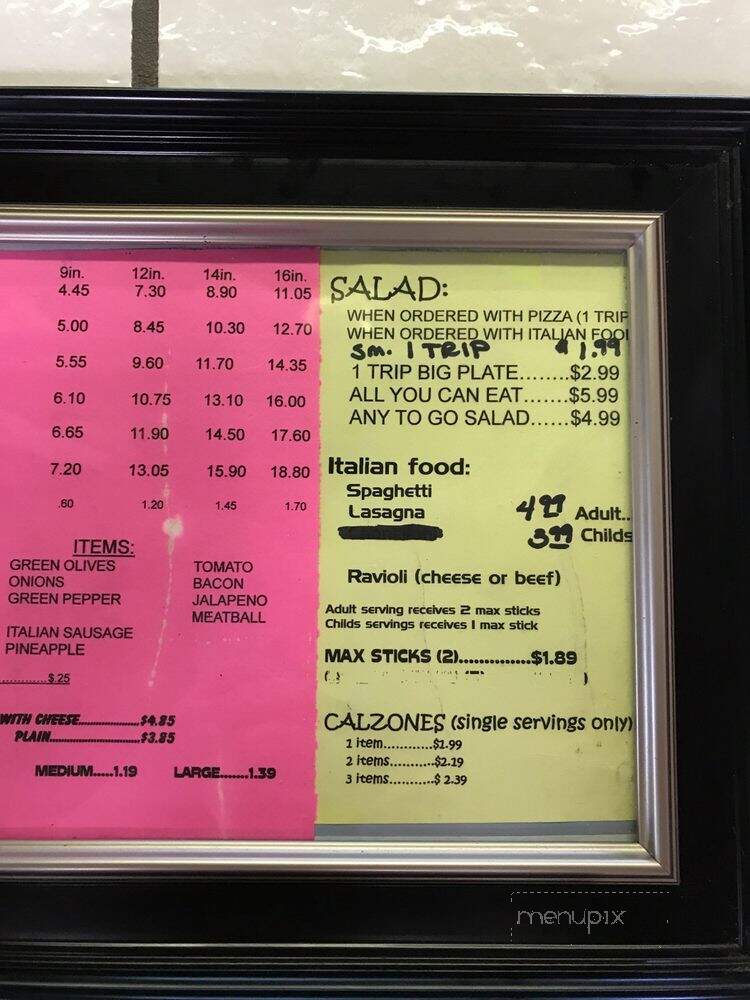 9in. 12in. 14in. 16in.
4.45 7.30 8.90 11.05
5.00 8.45 10.30 12.70
5.55 9.60 11.70 14.35
6.10 10.75 13.10 16.00
6.65 11.90 14.50 17.60
7.20 13.05 15.90 18.80
.60 1.20 1.45 1.70
ITEMS:
GREEN OLIVES TOMATO
ONIONS BACON
GREEN PEPPER JALAPENO
MEATBALL
ITALIAN SAUSAGE
PINEAPPLE
............$.25
WITH CHEESE...............$4.85
PLAIN......................$3.85
MEDIUM.....1.19 LARGE.......1.39
SALAD:
WHEN ORDERED WITH PIZZA (1 TRIP
WHEN ORDERED WITH ITALIAN FOOD
Sm. 1 TRIP 1.99
1 TRIP BIG PLATE........$2.99
ALL YOU CAN EAT.......$5.99
ANY TO GO SALAD......$4.99
Italian food:
Spaghetti
Lasagna 4 99 Adult..
3 99 Childs
Ravioli (cheese or beef)
Adult serving receives 2 max sticks
Childs servings receives 1 max stick
MAX STICKS (2)...............$1.89
CALZONES (single servings only)
1 item............$1.99
2 items..........$2.19
3 items..........$ 2.39
menupix